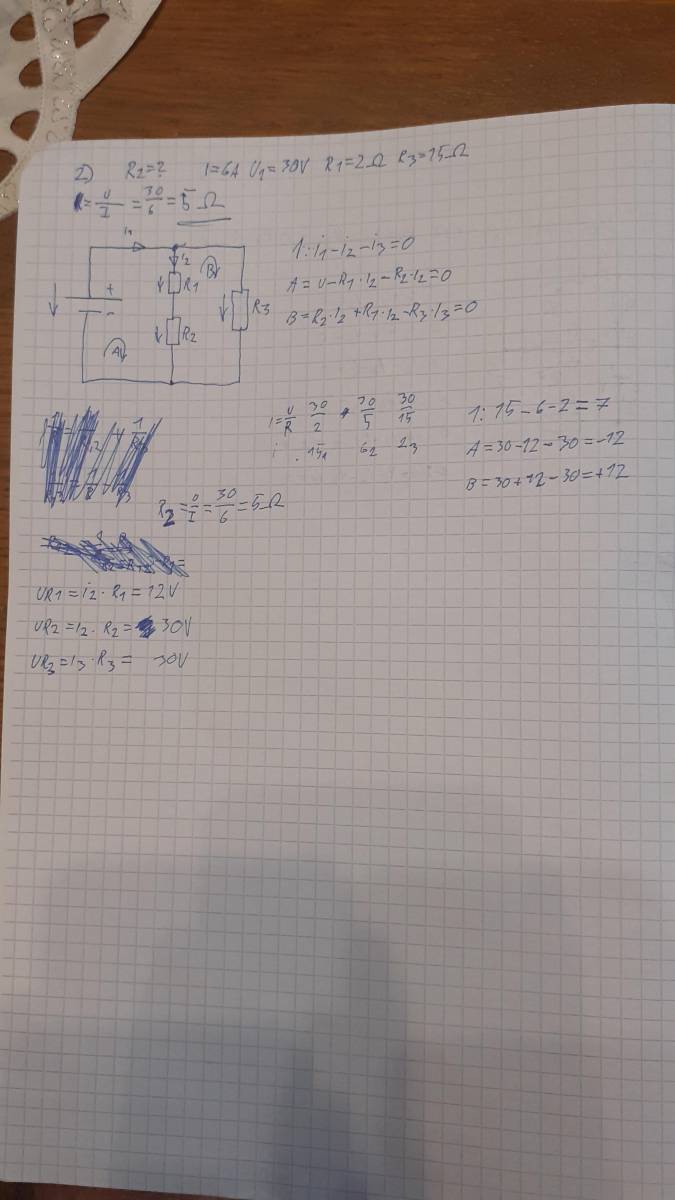 2) R2=? I=6A U1=30V R1=2Ω R3=15Ω
R=U/I=30/6=5Ω
i1
i2
B
R1
R3
+
-
R2
A
1: i1-i2-i3=0
A=U-R1·i2-R2·i2=0
B=R2·i2+R1·i2-R3·i3=0
I=U/R 30/2 30/5 30/15
i 15 1 6 2 2 3
1: 15-6-2=7
A=30-12-30=-12
B=30+12-30=+12
R2=U/I=30/6=5Ω
UR1=i2·R1=12V
UR2=i2·R2=30V
UR3=i3·R3=30V